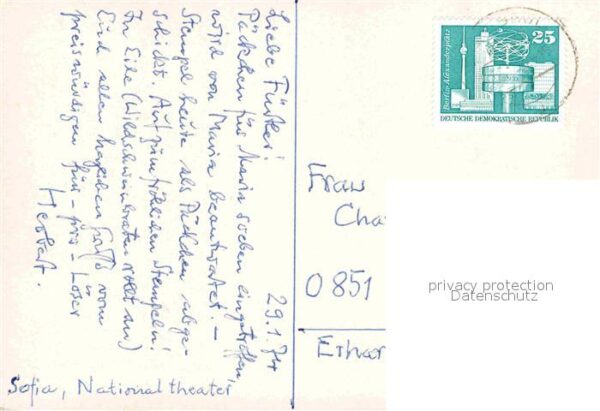 Liebe Fürstin!
Päckchen für Maria soeben eingetroffen,
wird von Maria beantwortet –
Stempel heute als Päckchen abge-
schickt. Auf zum fröhlichen Stempeln!
In Eile (Wildschweinbraten rollt an)
Sind allen herzlichen Gruß vom
preiswürdigen für - pirs - Löser
Herbert.
29.1.74
Sofia, Nationaltheater
25
Berlin-Alexanderplatz
DEUTSCHE DEMOKRATISCHE REPUBLIK
Frau
Cha
0851
Erhar
privacy protection
Datenschutz